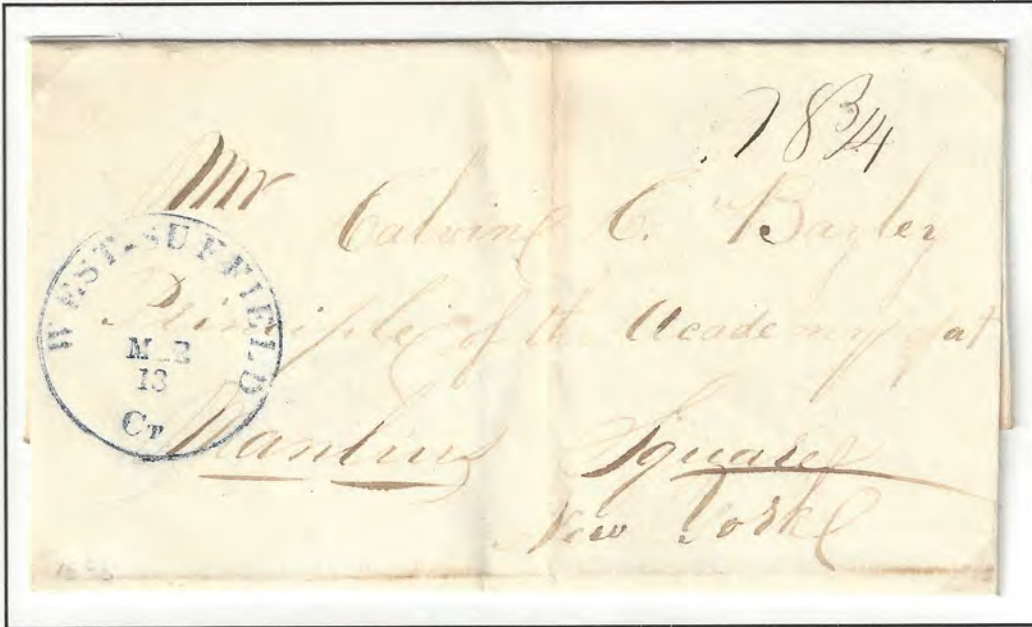 18 3/4
Mr
Calvin C. Bayley
Principle of the Academy at
Manlius Square
New York
WEST-SUFFIELD
M R
13
CT